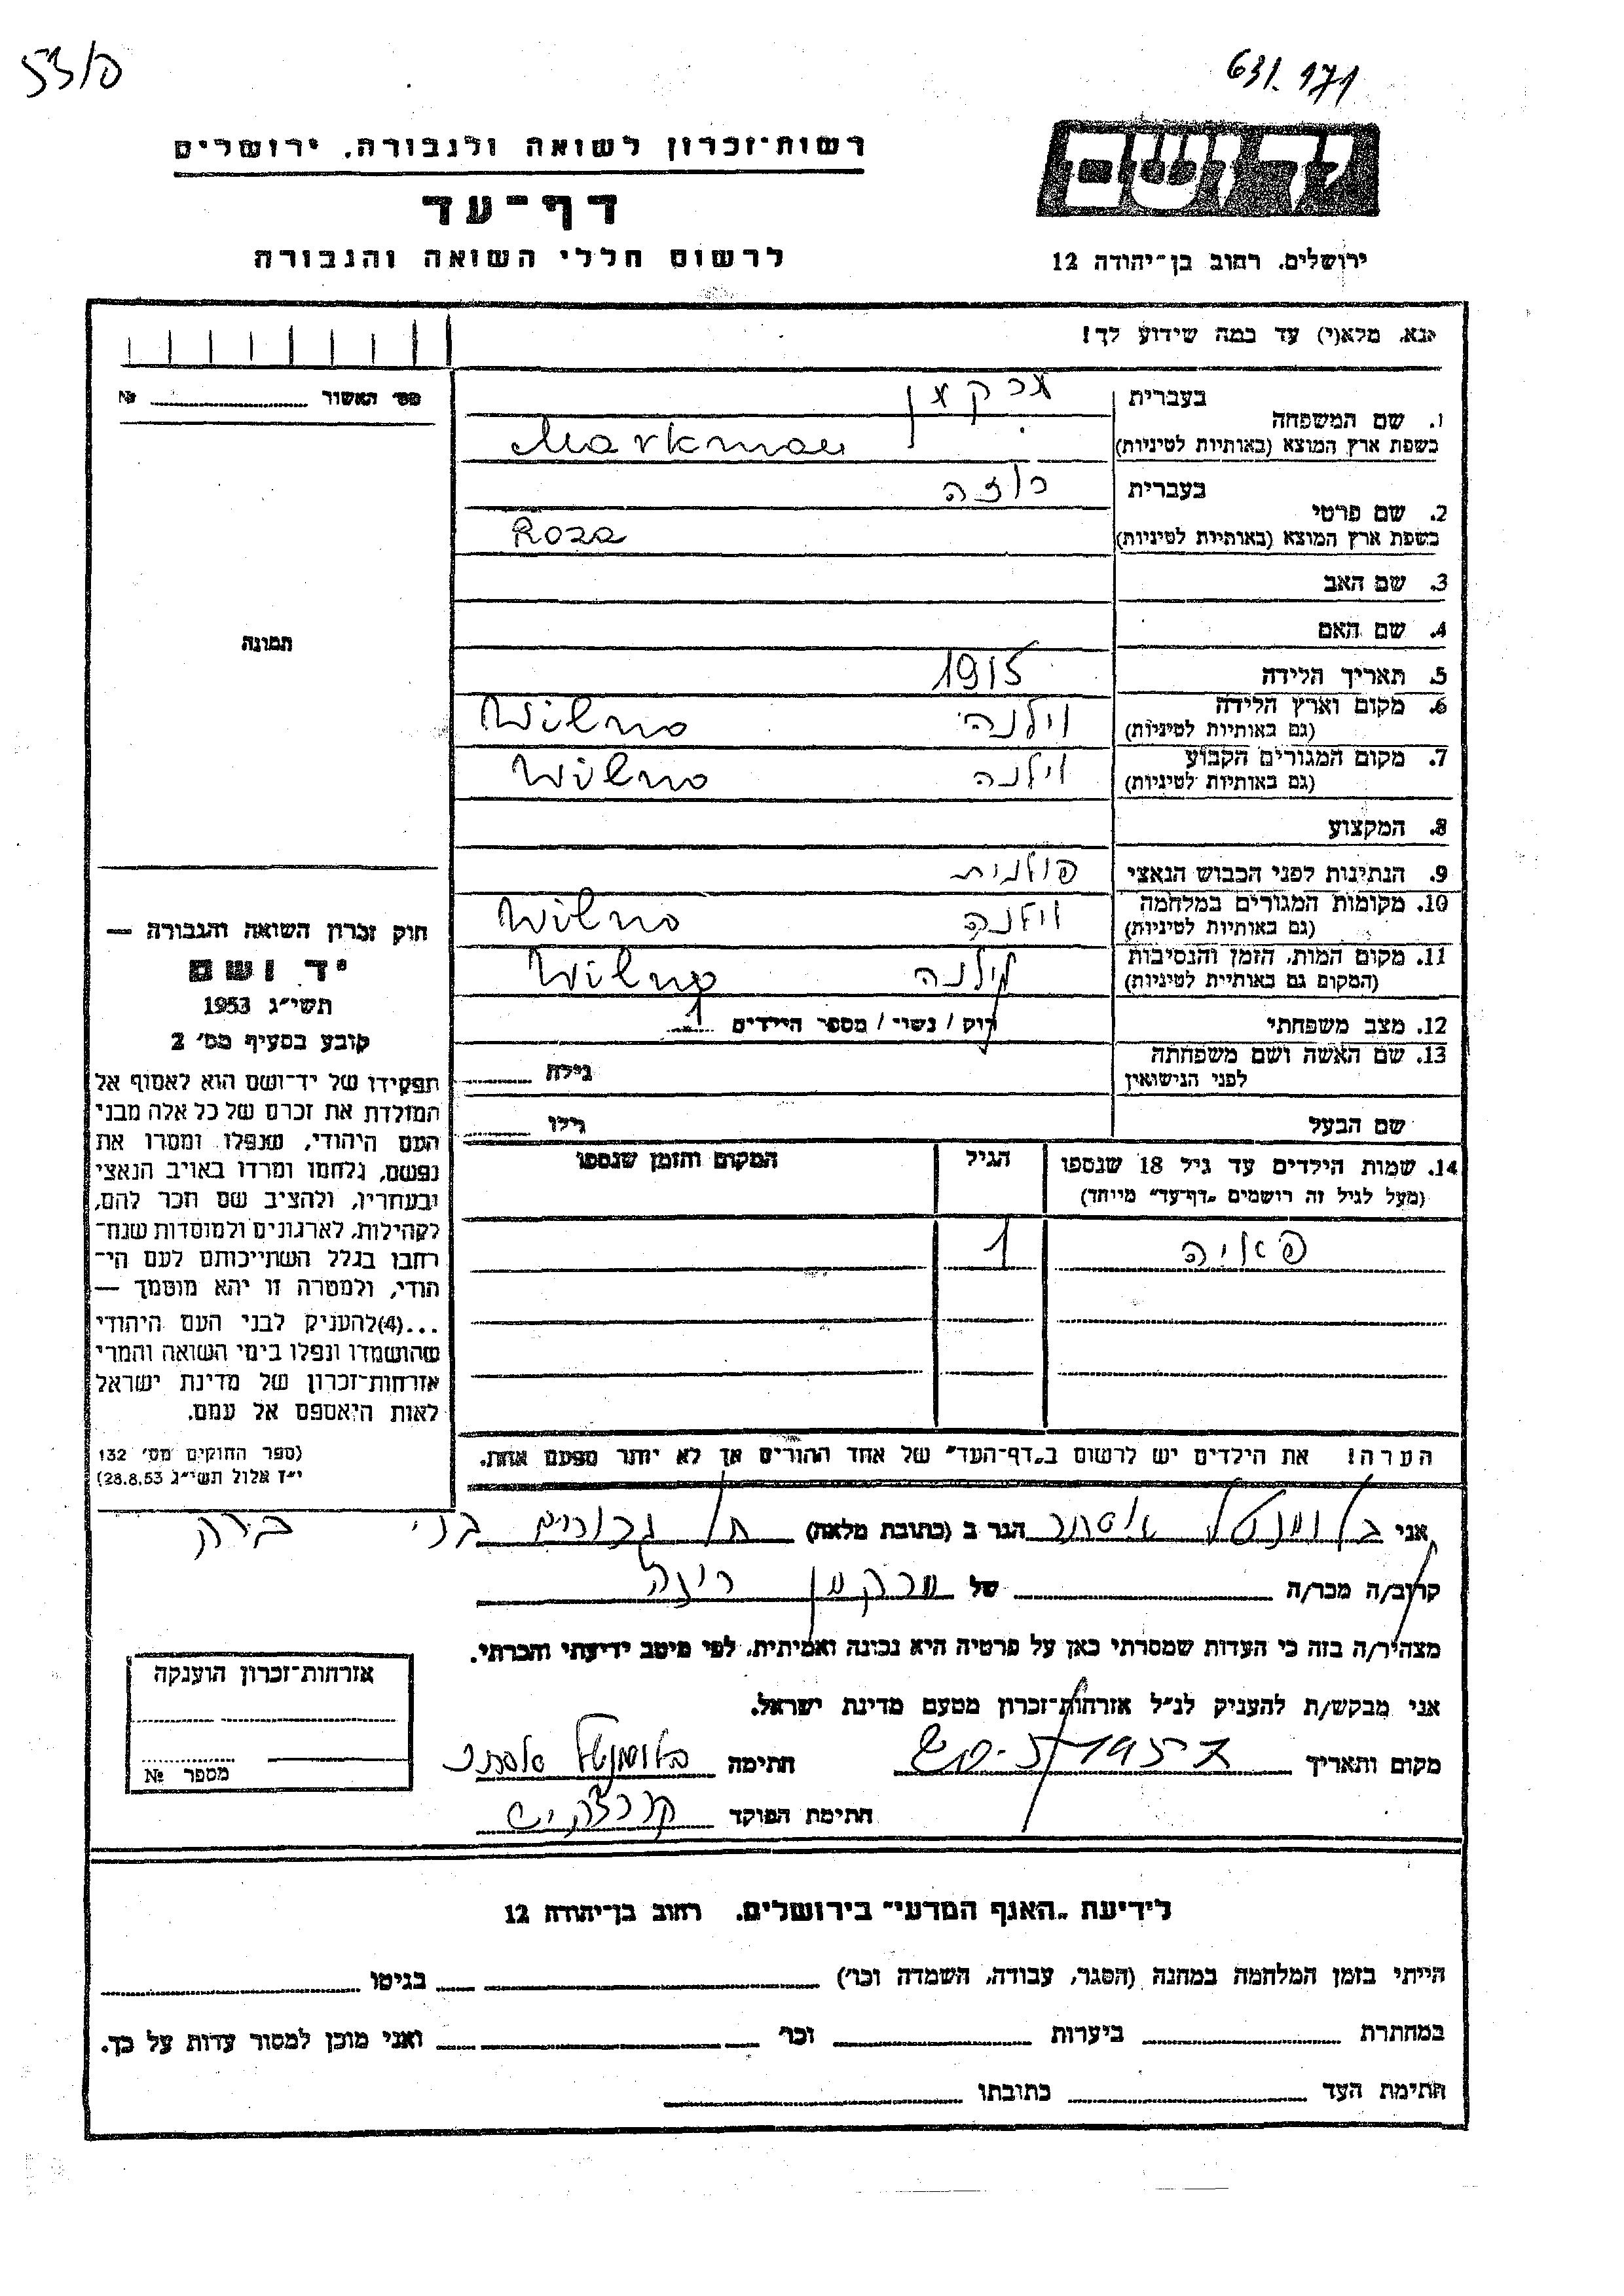 53/פ
631.171
רשות־זכרון לשואה ולגבורה, ירושלים
דף־עד
לרשום חללי השואה והגבורה
יד ושם
ירושלים, רחוב בן־יהודה 12
נא, מלא(י) עד כמה שידוע לך!
מס׳ האשור № 
1. שם המשפחה
בעברית מרקמן
בשפת ארץ המוצא (באותיות לטיניות) Markman
2. שם פרטי
בעברית רוזה
בשפת ארץ המוצא (באותיות לטיניות) Roza
3. שם האב
4. שם האם
5. תאריך הלידה 1915
6. מקום וארץ הלידה (גם באותיות לטיניות) וילנה Wilno
7. מקום המגורים הקבוע (גם באותיות לטיניות) וילנה Wilno
8. המקצוע
9. הנתינות לפני הכבוש הנאצי פולנית
10. מקומות המגורים במלחמה (גם באותיות לטיניות) וילנה Wilno
11. מקום המות, הזמן והנסיבות (המקום גם באותיית לטיניות) וילנה Wilno
12. מצב משפחתי רוק / נשוי / מספר הילדים 1
13. שם האשה ושם משפחתה לפני הנישואין גילה
שם הבעל גילו
14. שמות הילדים עד גיל 18 שנספו (מעל לגיל זה רושמים „דף־עד" מייחד) הגיל המקום והזמן שנספו
פאיה 1
הערה! את הילדים יש לרשום ב„דף־העד" של אחד ההורים אך לא יותר מפעם אחת.
תמונה
חוק זכרון השואה והגבורה —
יד ושם
תשי״ג 1953
קובע בסעיף מס׳ 2
תפקידו של יד־ושם הוא לאסוף אל
המולדת את זכרם של כל אלה מבני
העם היהודי, שנפלו ומסרו את
נפשם, נלחמו ומרדו באויב הנאצי
ובעוזריו, ולהציב שם וזכר להם,
לקהילות, לארגונים ולמוסדות שנח־
רבו בגלל השתייכותם לעם הי־
הודי, ולמטרה זו יהא מוסמך —
...(4)להעניק לבני העם היהודי
שהושמדו ונפלו בימי השואה והמרי
אזרחות־זכרון של מדינת ישראל
לאות היאספם אל עמם.
(ספר החוקים מס׳ 132
י״ז אלול תשי״ג 28.8.53)
אני בלומנטל אסתר הגר ב (כתובת מלאה) תל גבורים בני ברק
קרוב/ה מכר/ה של מרקמן רוזה
מצהיר/ה בזה כי העדות שמסרתי כאן על פרטיה היא נכונה ואמיתית, לפי מיטב ידיעתי והכרתי.
אני מבקש/ת להעניק לנ״ל אזרחות־זכרון מטעם מדינת ישראל.
מקום ותאריך חתימה בלומנטל אסתר
חתימת הפוקד
אזרחות־זכרון הוענקה
מספר №
לידיעת „האגף המדעי" בירושלים, רחוב בן־יהודה 12
הייתי בזמן המלחמה במחנה (הסגר, עבודה, השמדה וכו׳) בגיטו
במחתרת ביערות וכו׳ ואני מוכן למסור עדות על כך.
חתימת העד כתובתו